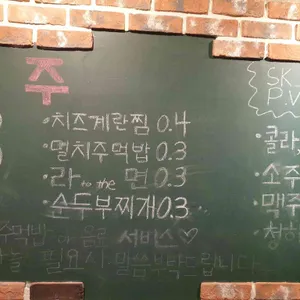 주
SK
P.V
·치즈계란찜 0.4
·멸치주먹밥 0.3
·라 to the 면 0.3
·순두부찌개 0.3
·콜라,
·소주
·맥주
·청하
주먹밥 서비스♡
필요시 말씀부탁드립니다